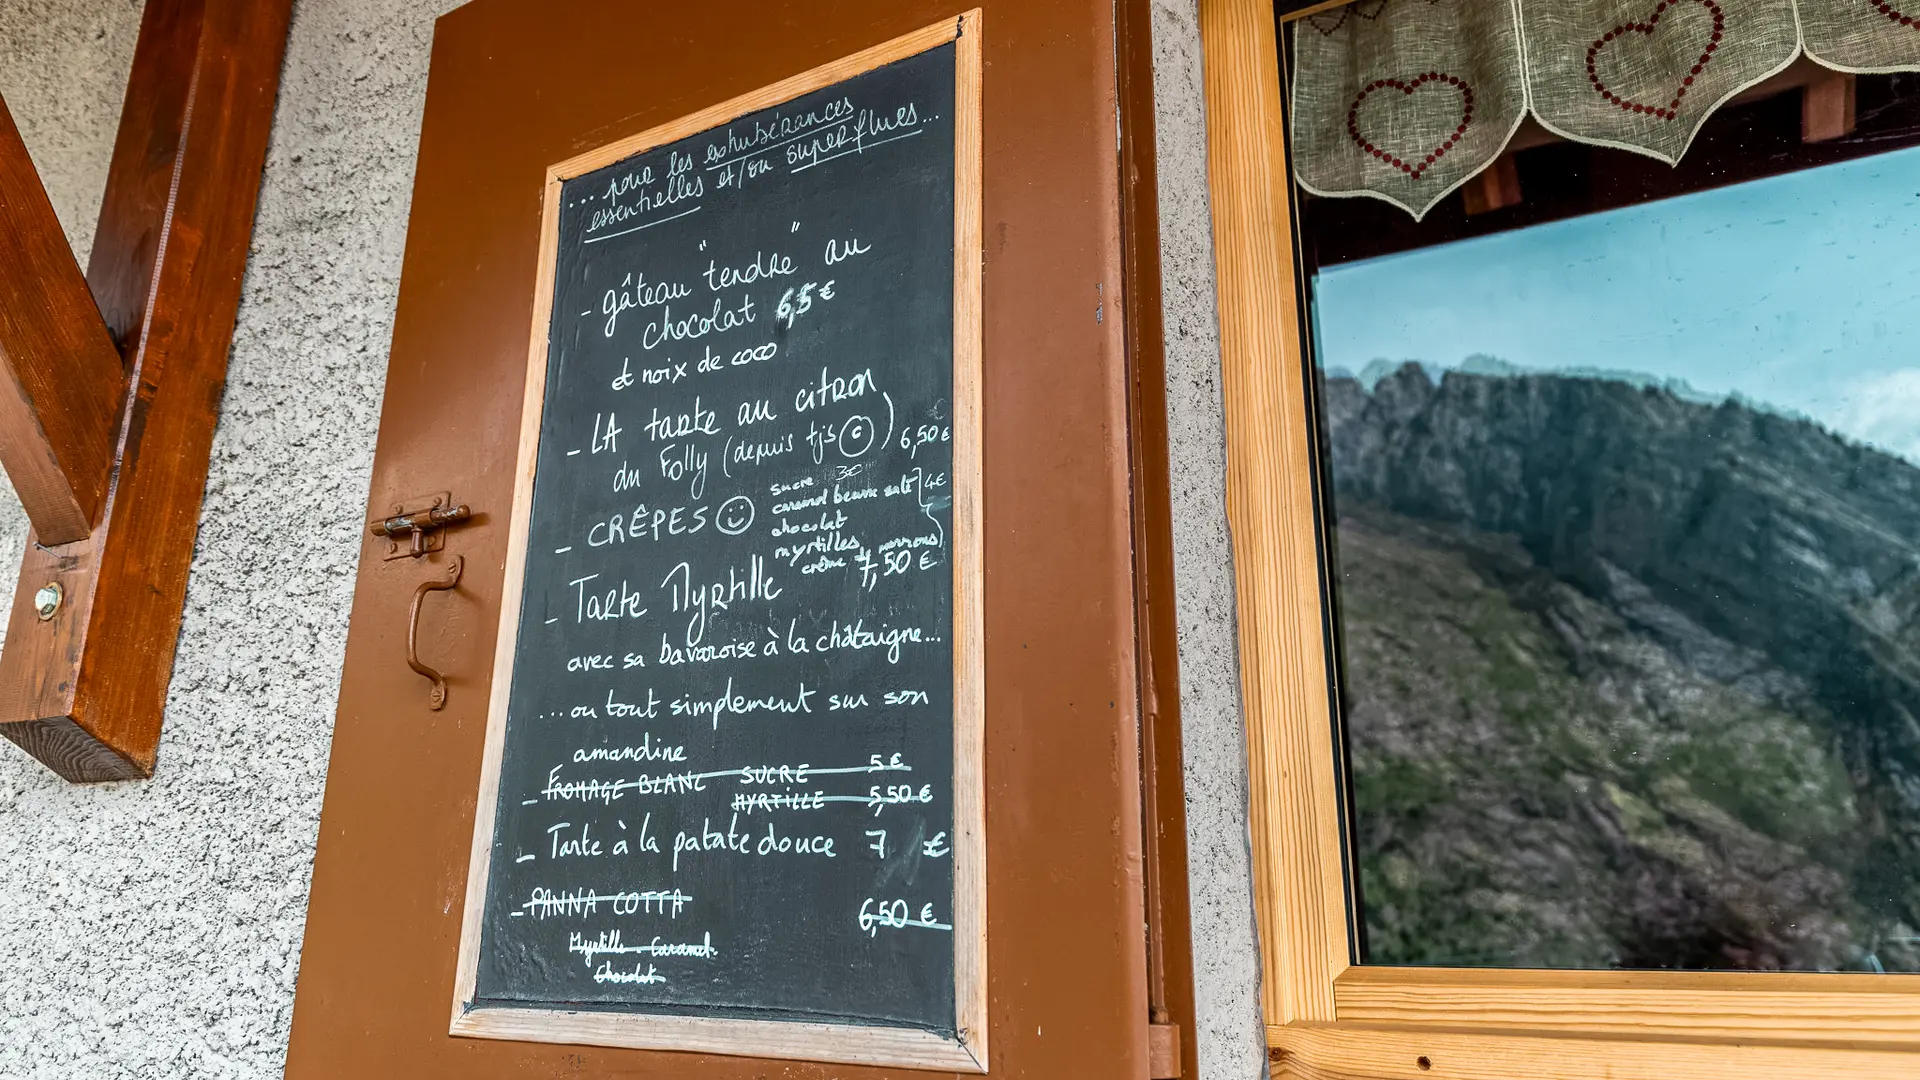 ... pour les exhubérances
essentielles et/ou superflues...
- gâteau "tendre" au
chocolat 6,5€
et noix de coco
- LA tarte au citron
du Folly (depuis tjs ©) 6,50€
- CRÊPES sucre 3€
caramel beurre salé 4€
chocolat
myrtilles, marrons
crème
- Tarte Myrtille 7,50 €
avec sa bavaroise à la châtaigne...
... ou tout simplement sur son
amandine
- FROMAGE BLANC SUCRE 5 €
MYRTILLE 5,50 €
- Tarte à la patate douce 7 €
- PANNA COTTA 6,50 €
Myrtille - Caramel -
Chocolat